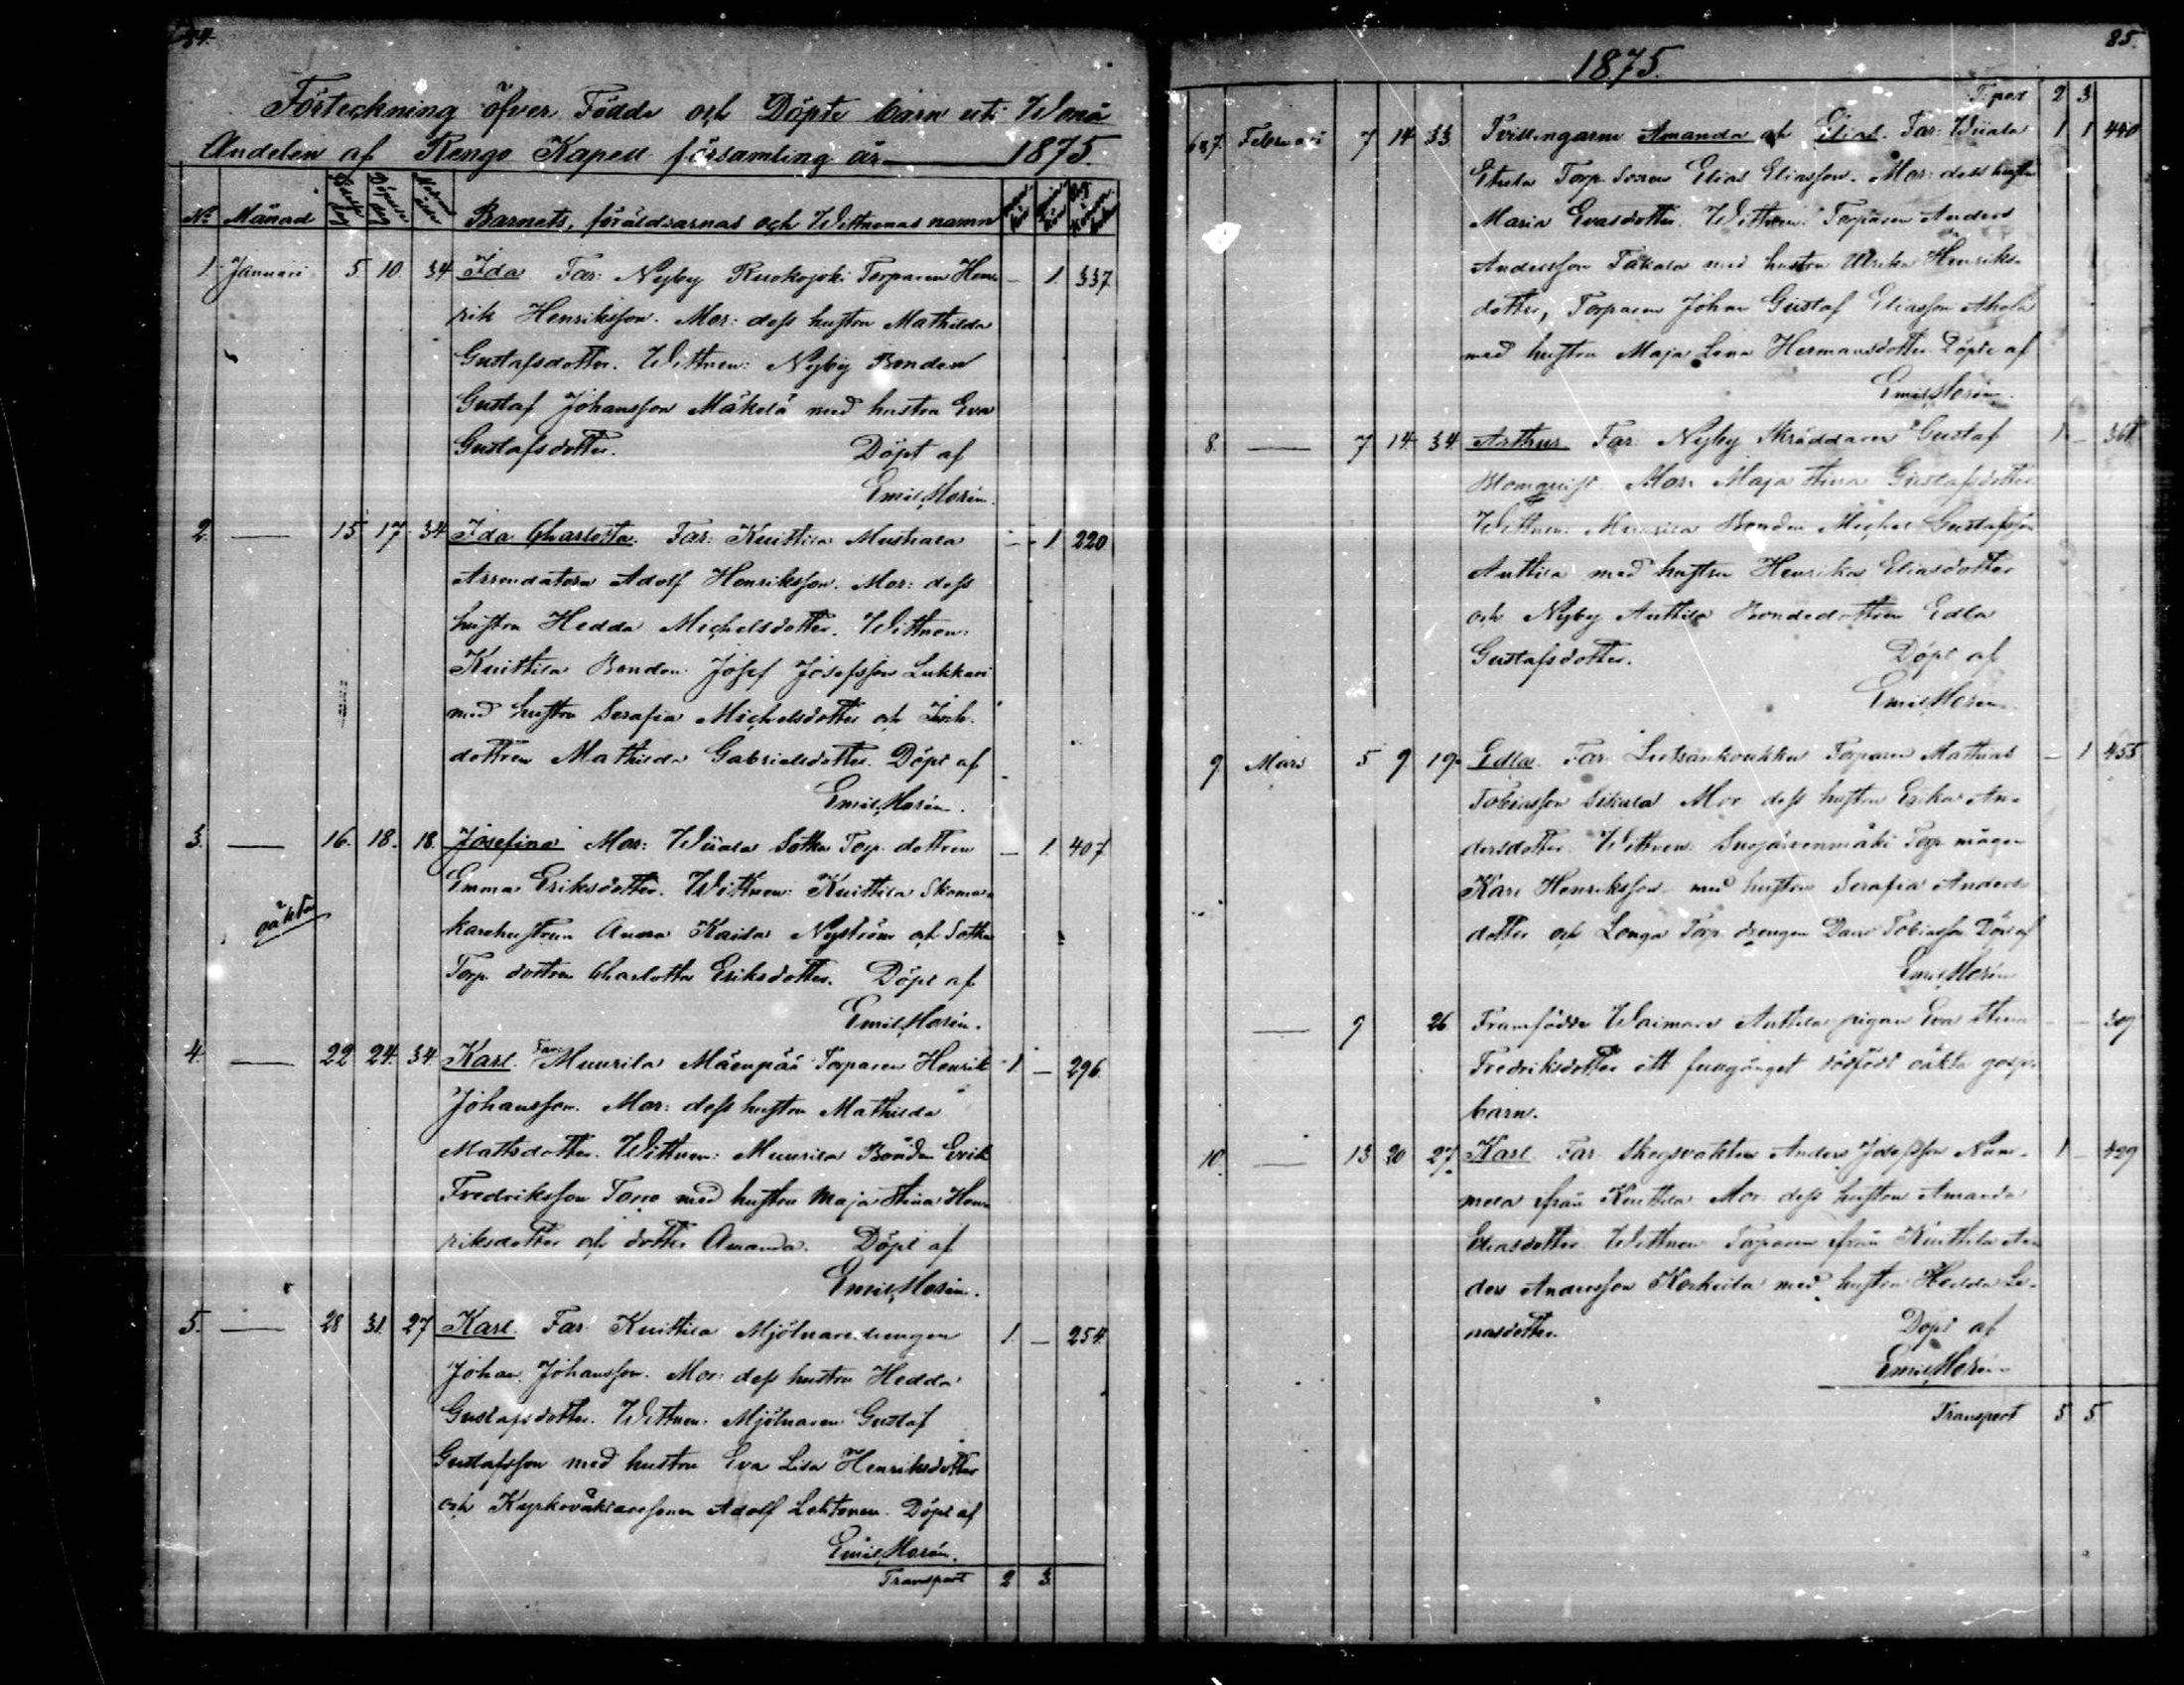 84.
Förteckning öfver Födde och Döpte barn uti Wånå
Andelen af Rengo Kapell församling år 1875.
No Månad Födelse dag Döpelse dag Moderns ålder Barnets, föräldrarnas och Wittnenas namn
1. Januari 5. 10. 34 Ida Far: Nyby Ruokojoki Torparen Hen- — 1. 337.
rik Henriksson. Mor: dess hustru Mathilda
Gustafsdotter. Wittnen: Nyby Bonden
Gustaf Johansson Mäkelä med hustru Eva
Gustafsdotter. Döpt af
Emil Horén.
2. — 15 17 34 Ida Charlotta. Far: Kuittila Mustiala — 1. 220
Arrendatorn Adolf Henriksson. Mor: dess
hustru Hedda Michelsdotter. Wittnen:
Kuittila Bonden Josef Josefsson Lukkari
med hustru Serafia Michelsdotter och
dottren Mathilda Gabrielsdotter. Döpt af
Emil Horén.
3. — 16. 18. 18. Josefina Mor: Wiiala Sotka Torp. dottren — 1. 407
Emma Eriksdotter. Wittnen: Kuittila Skoma-
oäkta
karehustrun Anna Kaisa Nyström och Sotka
Torp. dottren Charlotta Eriksdotter. Döpt af
Emil Horén.
4. — 22 24. 34. Karl. Far: Muurila Mäenpää Torparen Henrik 1 — 296.
Johansson. Mor: dess hustru Mathilda
Mattsdotter. Wittnen: Muurila Bonden Erik
Fredriksson Torro med hustru Maja Stina Hen-
riksdotter och dotter Amanda. Döpt af
Emil Horén.
5. — 28 31. 27 Karl. Far: Kuittila Mjölnaredrengen 1. — 254.
Johan Johansson. Mor: dess hustru Hedda
Gustafsdotter. Wittnen: Mjölnaren Gustaf
Gustafsson med hustru Eva Lisa Henriksdotter
och Kyrkovaktaresonen Adolf Lehtonen. Döpt af
Emil Horén.
Transport 2 3.
85.
1875.
T:port 2 3
6&7. Februari 7 14 33. Tvillingarne Amanda och Elias. Far: Wiiala 1 1 440
Torp. Sonen Elias Eliasson. Mor: dess hustru
Maria Evasdotter. Wittnen: Torparen Anders
Andersson Takala med hustru Ulrika Henriks-
dotter, Torparen Johan Gustaf Eliasson Ahola
med hustru Maja Lena Hermansdotter. Döpte af
Emil Horén.
8. — 7. 14. 34. Arthur Far: Nyby Skräddaren Gustaf 1. — 361.
Blomquist Mor: Maja Stina Gustafsdotter
Wittnen: Muurila Bonden Michel Gustafsson
Anttila med hustru Henrika Eliasdotter
och Nyby Anttila Bondedottren Edla
Gustafsdotter. Döpt af
Emil Horén.
9 Mars 5 9 19. Edla. Far: Torparen Mathias — 1 455
Tobiasson Sikala Mor: dess hustru Erika An-
dersdotter. Wittnen: Torp. mågen
Karl Henriksson med hustru Serafia Anders-
dotter och Longa Torp. drengen Tobiasson Döpt af
Emil Horén
— 9 26 Framfödde Waimare Anttila pigan Eva Stina — — 309
Fredriksdotter ett fullgånget dödfödt oäkta
barn.
10. — 13 20 27. Karl. Far: Skogsvakten Anders Josefsson Num- 1 — 429
mela från Kuittila Mor: dess hustru Amanda
Eliasdotter. Wittnen: Torparen från Kuittila An-
ders Andersson Korkeila med hustru Hedda Le-
nasdotter. Döpt af
Emil Horén
Transport 5 5.